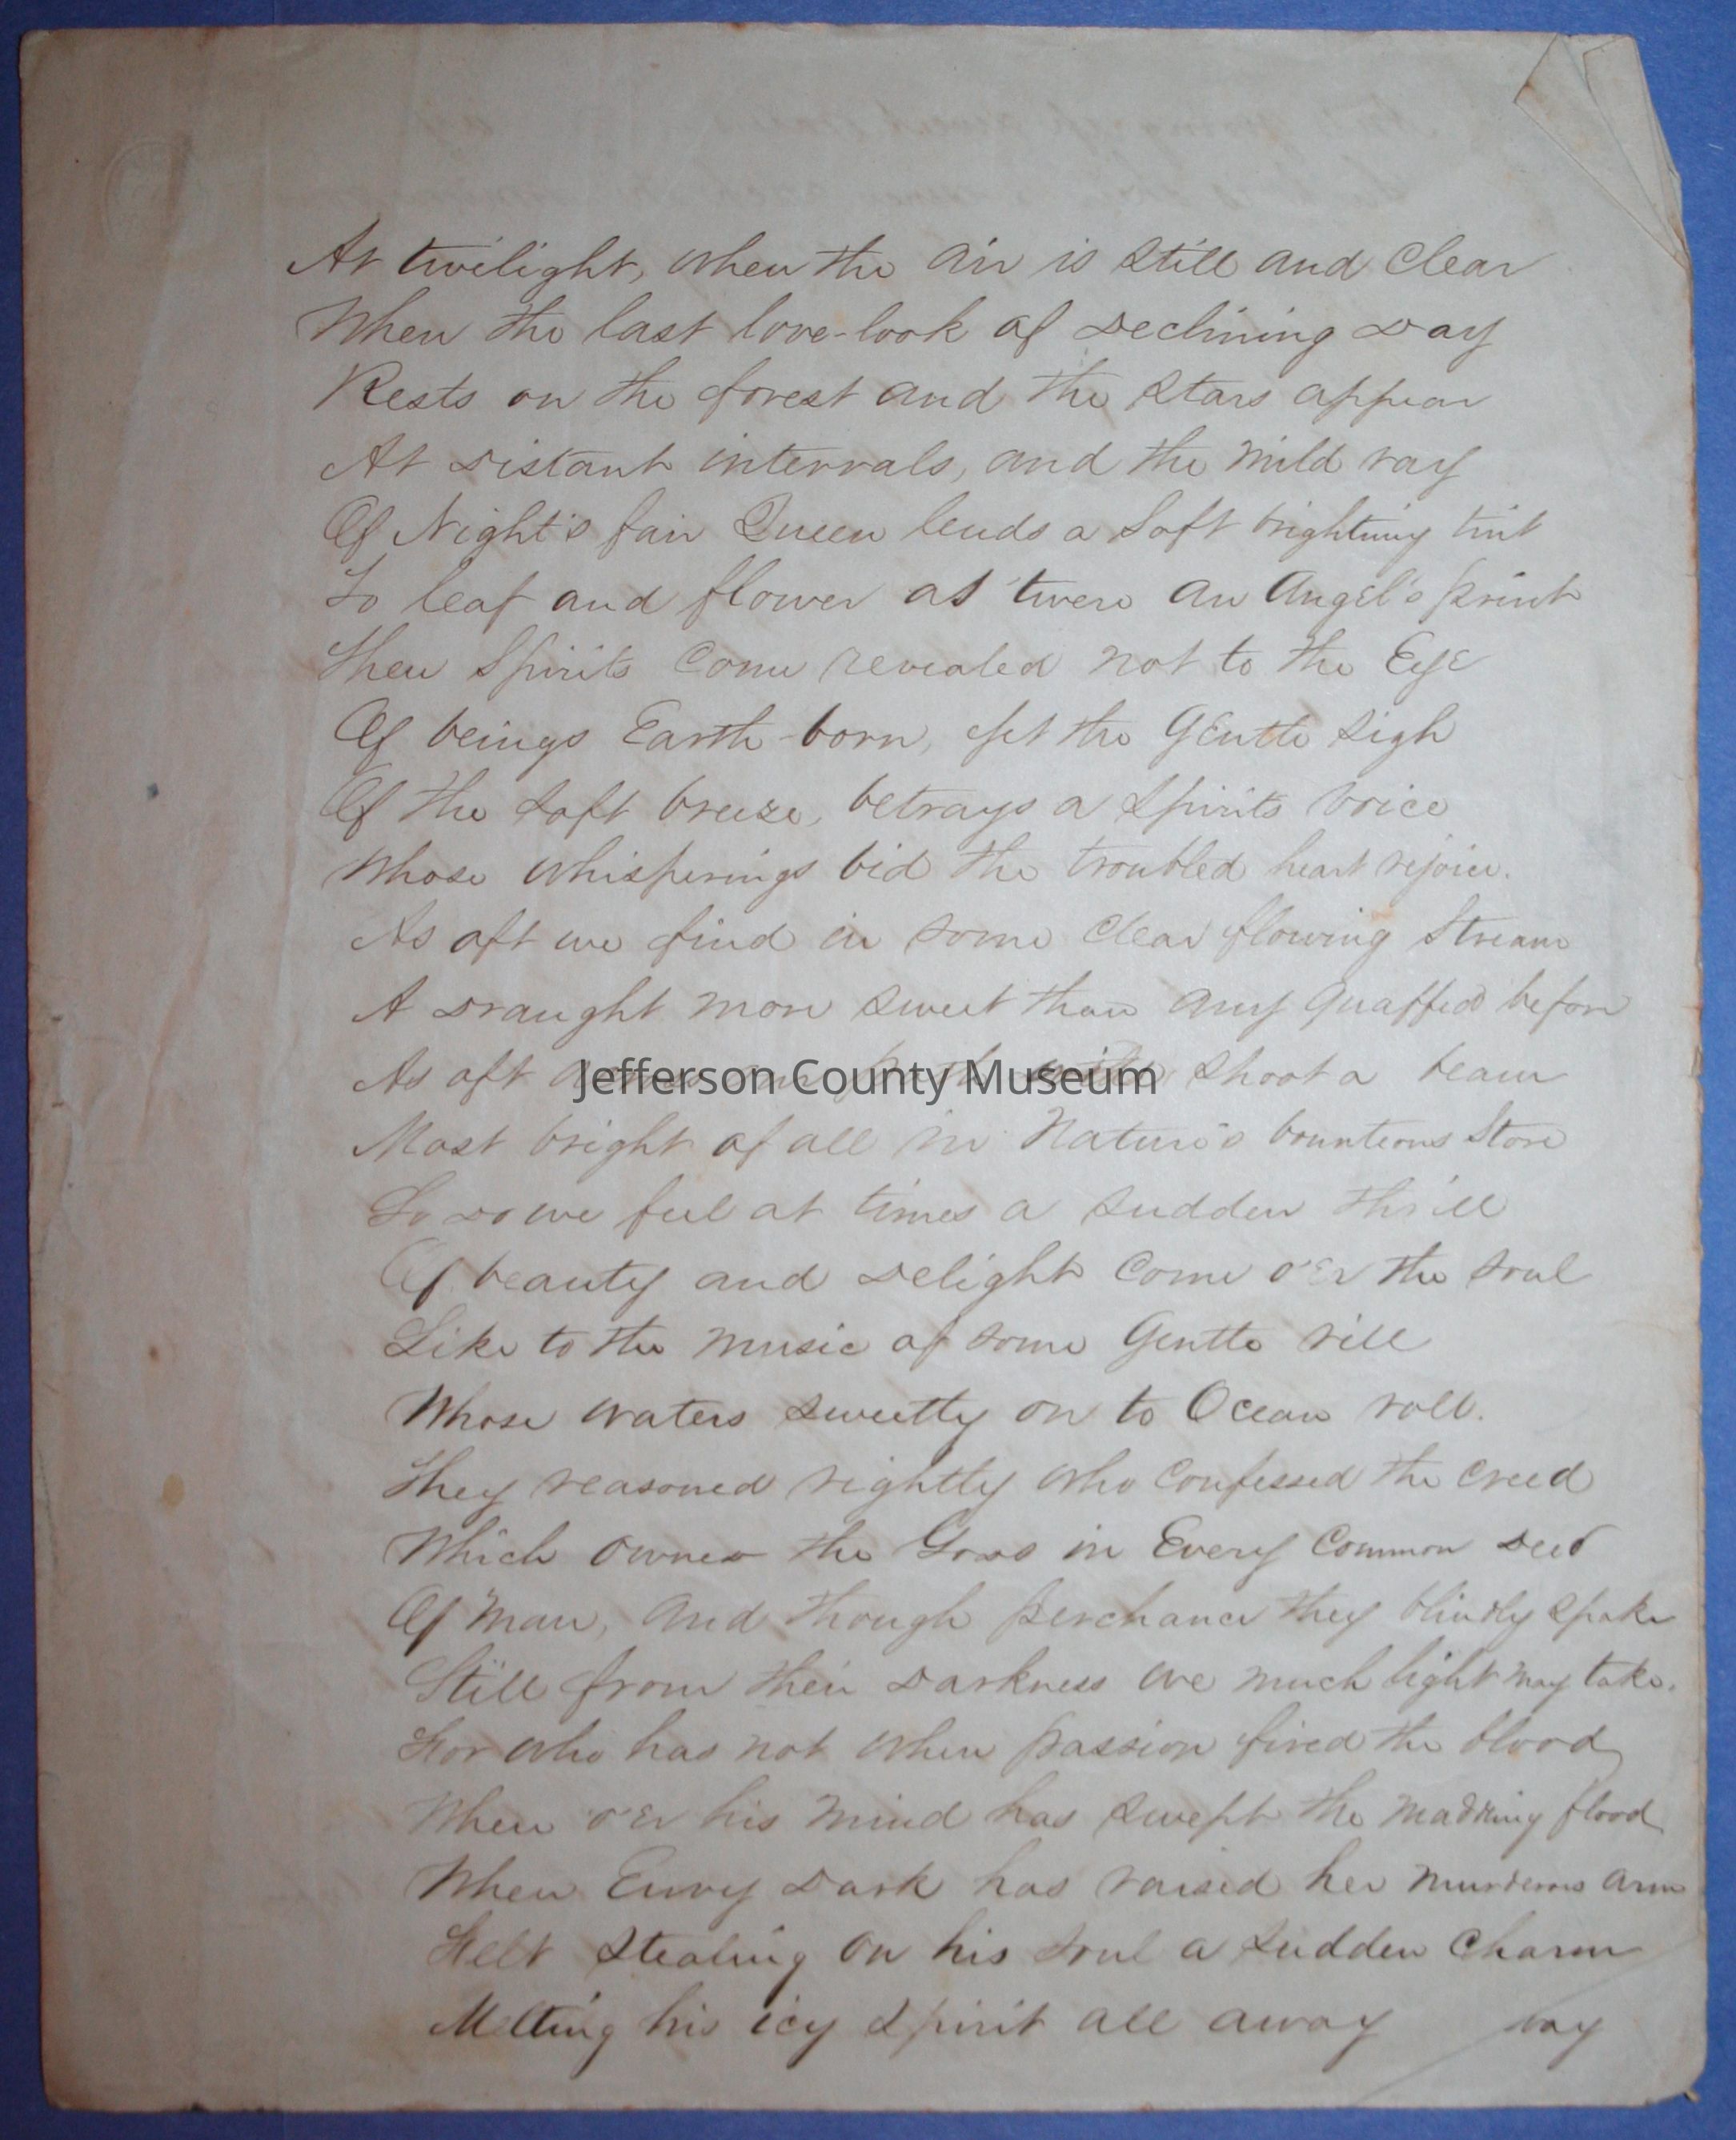 At twilight, when the air is still and clear
When the last love-look of declining day
Rests on the forest and the stars appear
At distant intervals, and the mild ray
Of Night's fair Queen lends a soft brightning tint
To leaf and flower as 'twere an Angel's print
Then Spirits come revealed not to the Eye
Of beings Earth-born, yet the Gentle sigh
Of the soft breeze, betrays a Spirits voice
Whose whisperings bid the troubled heart rejoice.
As oft we find in some clear flowing Stream
A draught more sweet than any quaffed before
As oft shoot a beam
Jefferson County Museum
Most bright of all in Nature's bounteous Store
So do we feel at times a sudden thrill
Of beauty and delight come o'er the soul
Like to the music of some Gentle rill
Whose waters sweetly on to Ocean roll.
They reasoned rightly who confessed the creed
Which owned the Gods in Every common deed
Of Man, and though perchance they blindly spake
Still from their darkness we much light may take.
For who has not when passion fired the blood
When o'er his mind has swept the madding flood
When Envy dark has raised her murderous arm
Felt stealing on his soul a sudden charm
Melting his icy spirit all away